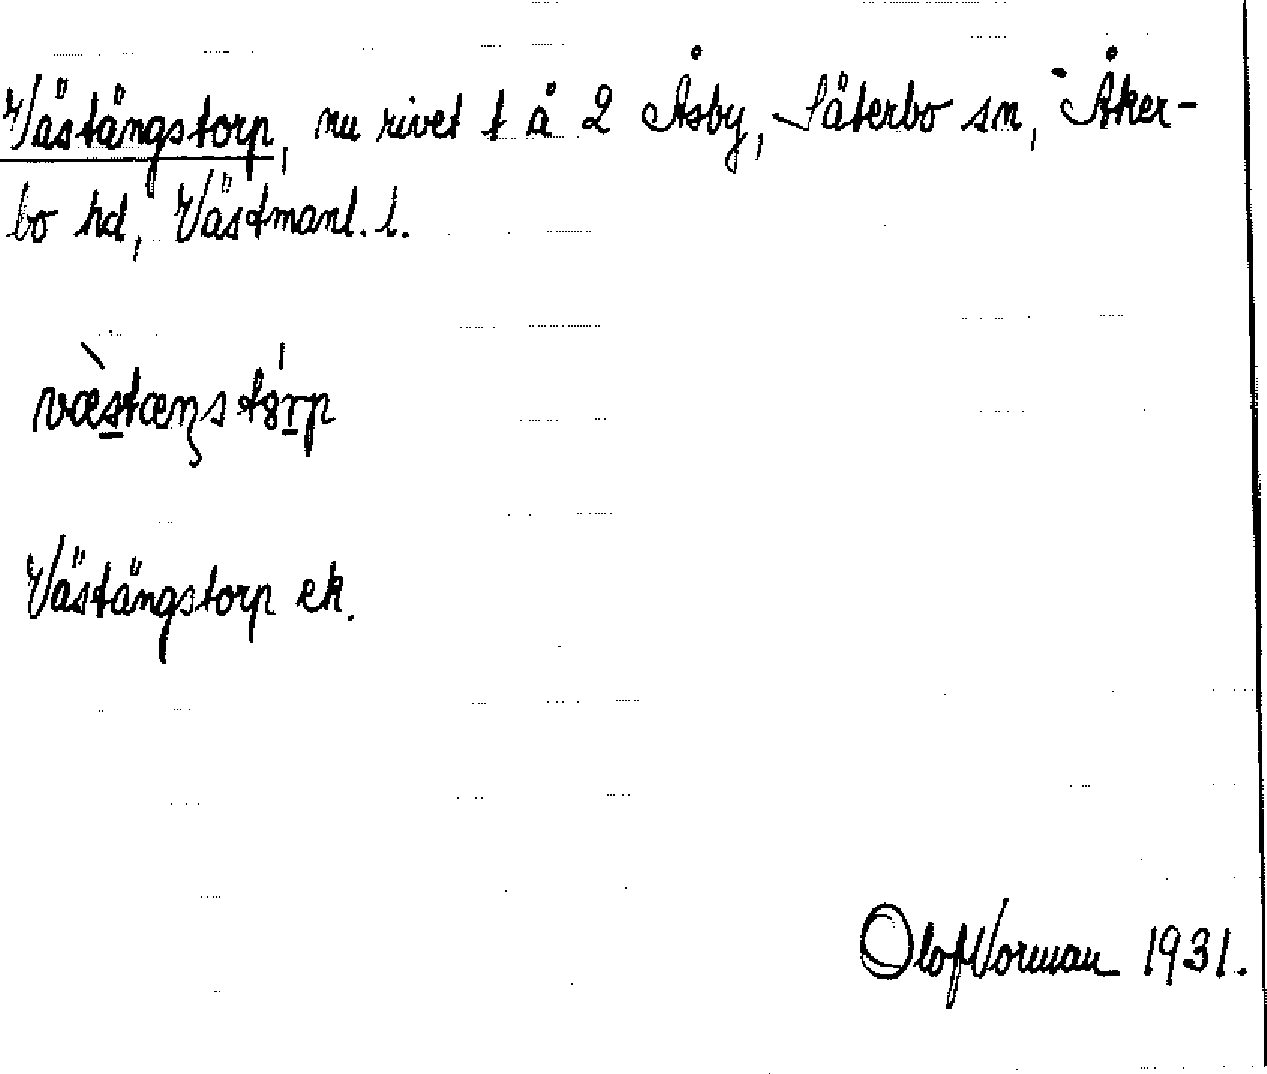 Västängstorp, nu rivet t å 2 Åsby, Säterbo sn, Åker-
bo hd, Västmanl. l.
Västängstorp ek.
Olof Norman 1931.